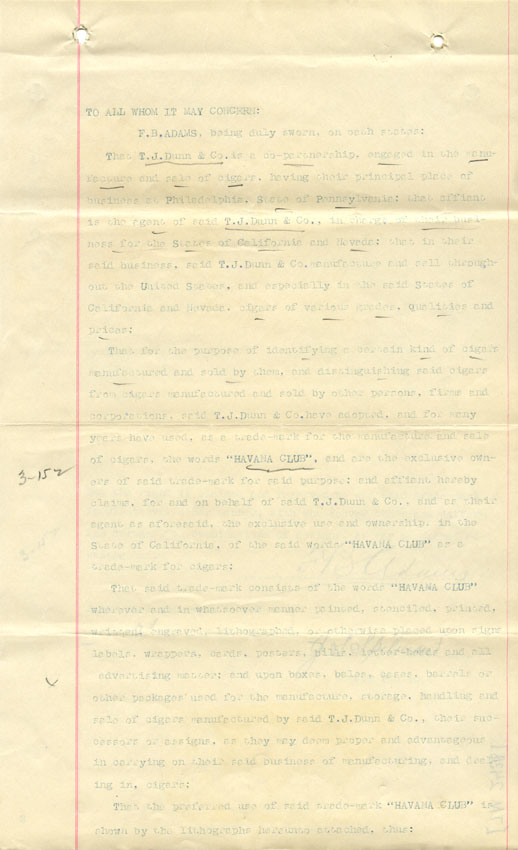 TO ALL WHOM IT MAY CONCERN:
F.B.ADAMS, being duly sworn, on oath states:
That T.J.Dunn & Co.is a co-partnership, engaged in the manu-
facture and sale of cigars, having their principal place of
business at Philadelphia, State of Pennsylvania; that affiant
is the agent of said T.J.Dunn & Co., in charge of their busi-
ness for the States of California and Nevada; that in their
said business, said T.J.Dunn & Co.manufacture and sell through-
out the United States, and especially in the said States of
California and Nevada, cigars of various grades, qualities and
prices;
That for the purpose of identifying a certain kind of cigars
manufactured and sold by them, and distinguishing said cigars
from cigars manufactured and sold by other persons, firms and
corporations, said T.J.Dunn & Co.have adopted, and for many
years have used, as a trade-mark for the manufacture and sale
of cigars, the words "HAVANA CLUB", and are the exclusive own-
3-152
ers of said trade-mark for said purpose; and affiant hereby
claims, for and on behalf of said T.J.Dunn & Co., and as their
agent as aforesaid, the exclusive use and ownership, in the
State of California, of the said words "HAVANA CLUB" as a
trade-mark for cigars;
That said trade-mark consists of the words "HAVANA CLUB"
wherever and in whatsoever manner painted, stenciled, printed,
engraved, lithographed, or otherwise placed upon signs
labels, wrappers, cards, posters, bills, letter-heads and all
advertising matter; and upon boxes, bales, cases, barrels or
other packages used for the manufacture, storage, handling and
sale of cigars manufactured by said T.J.Dunn & Co., their suc-
cessors or assigns, as they may deem proper and advantageous
in carrying on their said business of manufacturing, and deal-
ing in, cigars;
That the preferred use of said trade-mark "HAVANA CLUB" is
shown by the lithographs hereunto attached, thus: